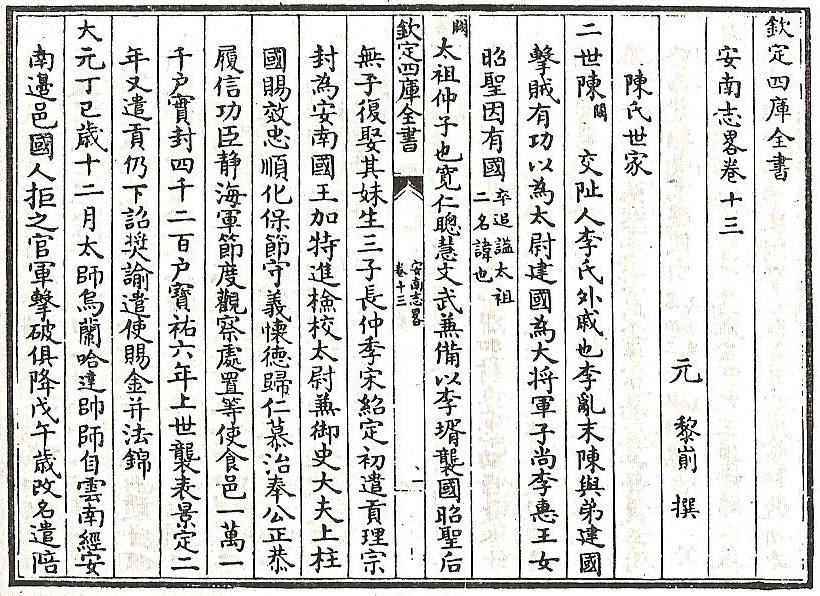 欽定四庫全書
安南志畧卷十三
元 黎崱 撰
陳氏世家
二世陳闕 交趾人李氏外戚也李亂末陳與弟建國
擊賊有功以為太尉建國為大將軍子尚李惠王女
昭聖因有國卒追謚太祖二名諱也
闕太祖仲子也寛仁聰慧文武兼備以李壻襲國昭聖后
欽定四庫全書 安南志畧 卷十三 一
無子復娶其妹生三子長仲季宋紹定初遣貢理宗
封為安南國王加特進檢校太尉兼御史大夫上柱
國賜效忠順化保節守義懷德歸仁慕治奉公正恭
履信功臣静海軍節度觀察處置等使食邑一萬一
千户實封四千二百户寳祐六年上世襲表景定二
年又遣貢仍下詔奬諭遣使賜金并法錦
大元丁巳歲十二月太師烏蘭哈達帥師自雲南經安
南邊邑國人拒之官軍擊破俱降戊午歲改名遣陪